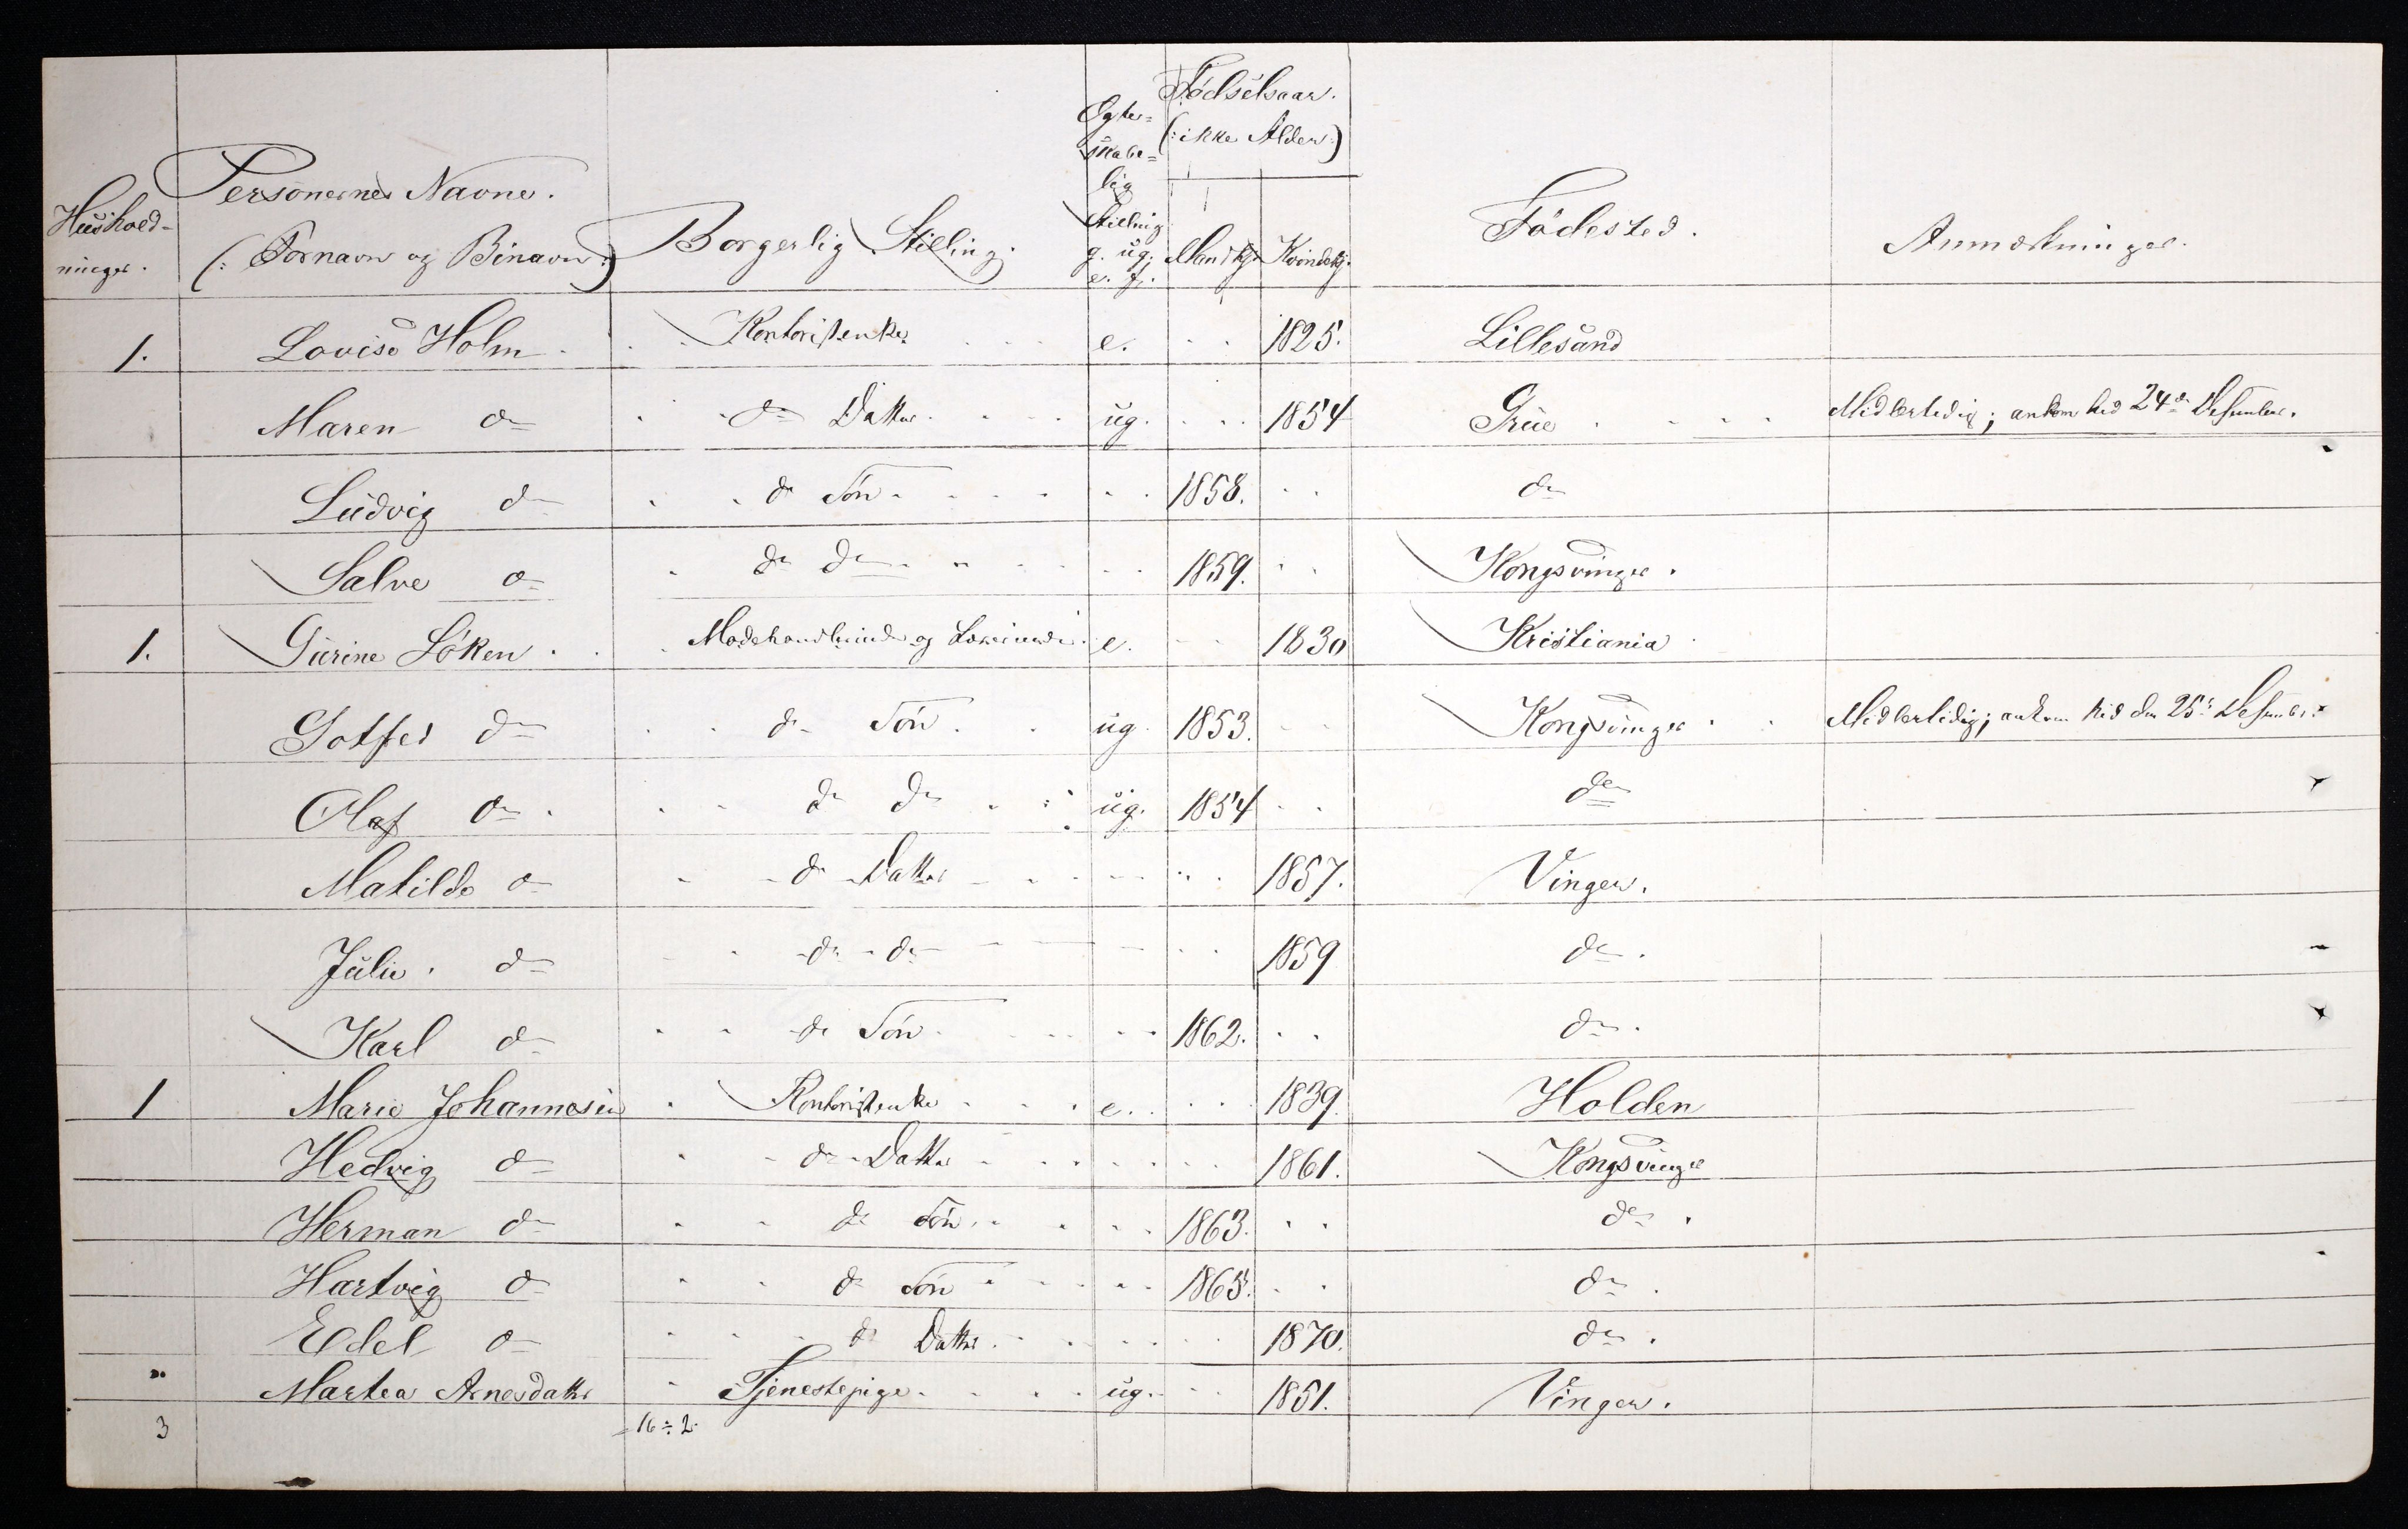 Hushold-
ninger.
Personernes Navne.
(: Fornavn og Binavn :)
Borgerlig Stilling.
Egte-
skabe-
lig
Stilling
g. ug.
e. f.
Födselsaar.
(: ikke Alder :)
Mandkj. Kvindekj.
Födested.
Anmærkninger.
1. Lovise Holm. Kontoristenke e. 1825. Lillesand
Maren do do Datter ug. 1854 Grue Midlertidig; ankom hid 24de Desember.
Ludvig do do Sön 1858. do
Salve do do do 1859. Kongsvinger.
1. Gurine Löken. Modehandlerinde og e. 1830 Kristiania
Gotfed do do Sön. ug. 1853. Kongsvinger Midlertidig; ankom hid den 25de Desember.
Olaf do do do ug. 1854 do
Matilde do do Datter 1857. Vinger.
Julie. do do do 1859 do.
Karl do do Sön 1862. do.
1 Marie Johannesen Kontoristenke e. 1839. Holden
Hedvig do do Datter 1861. Kongsvinger
Herman do do Sön 1863. do.
Hartvig do do Sön 1865. do.
Edel do do Datter. 1870. do.
Martea Arnesdatter Tjenestepige ug. 1851. Vinger.
3 16 ÷ 2